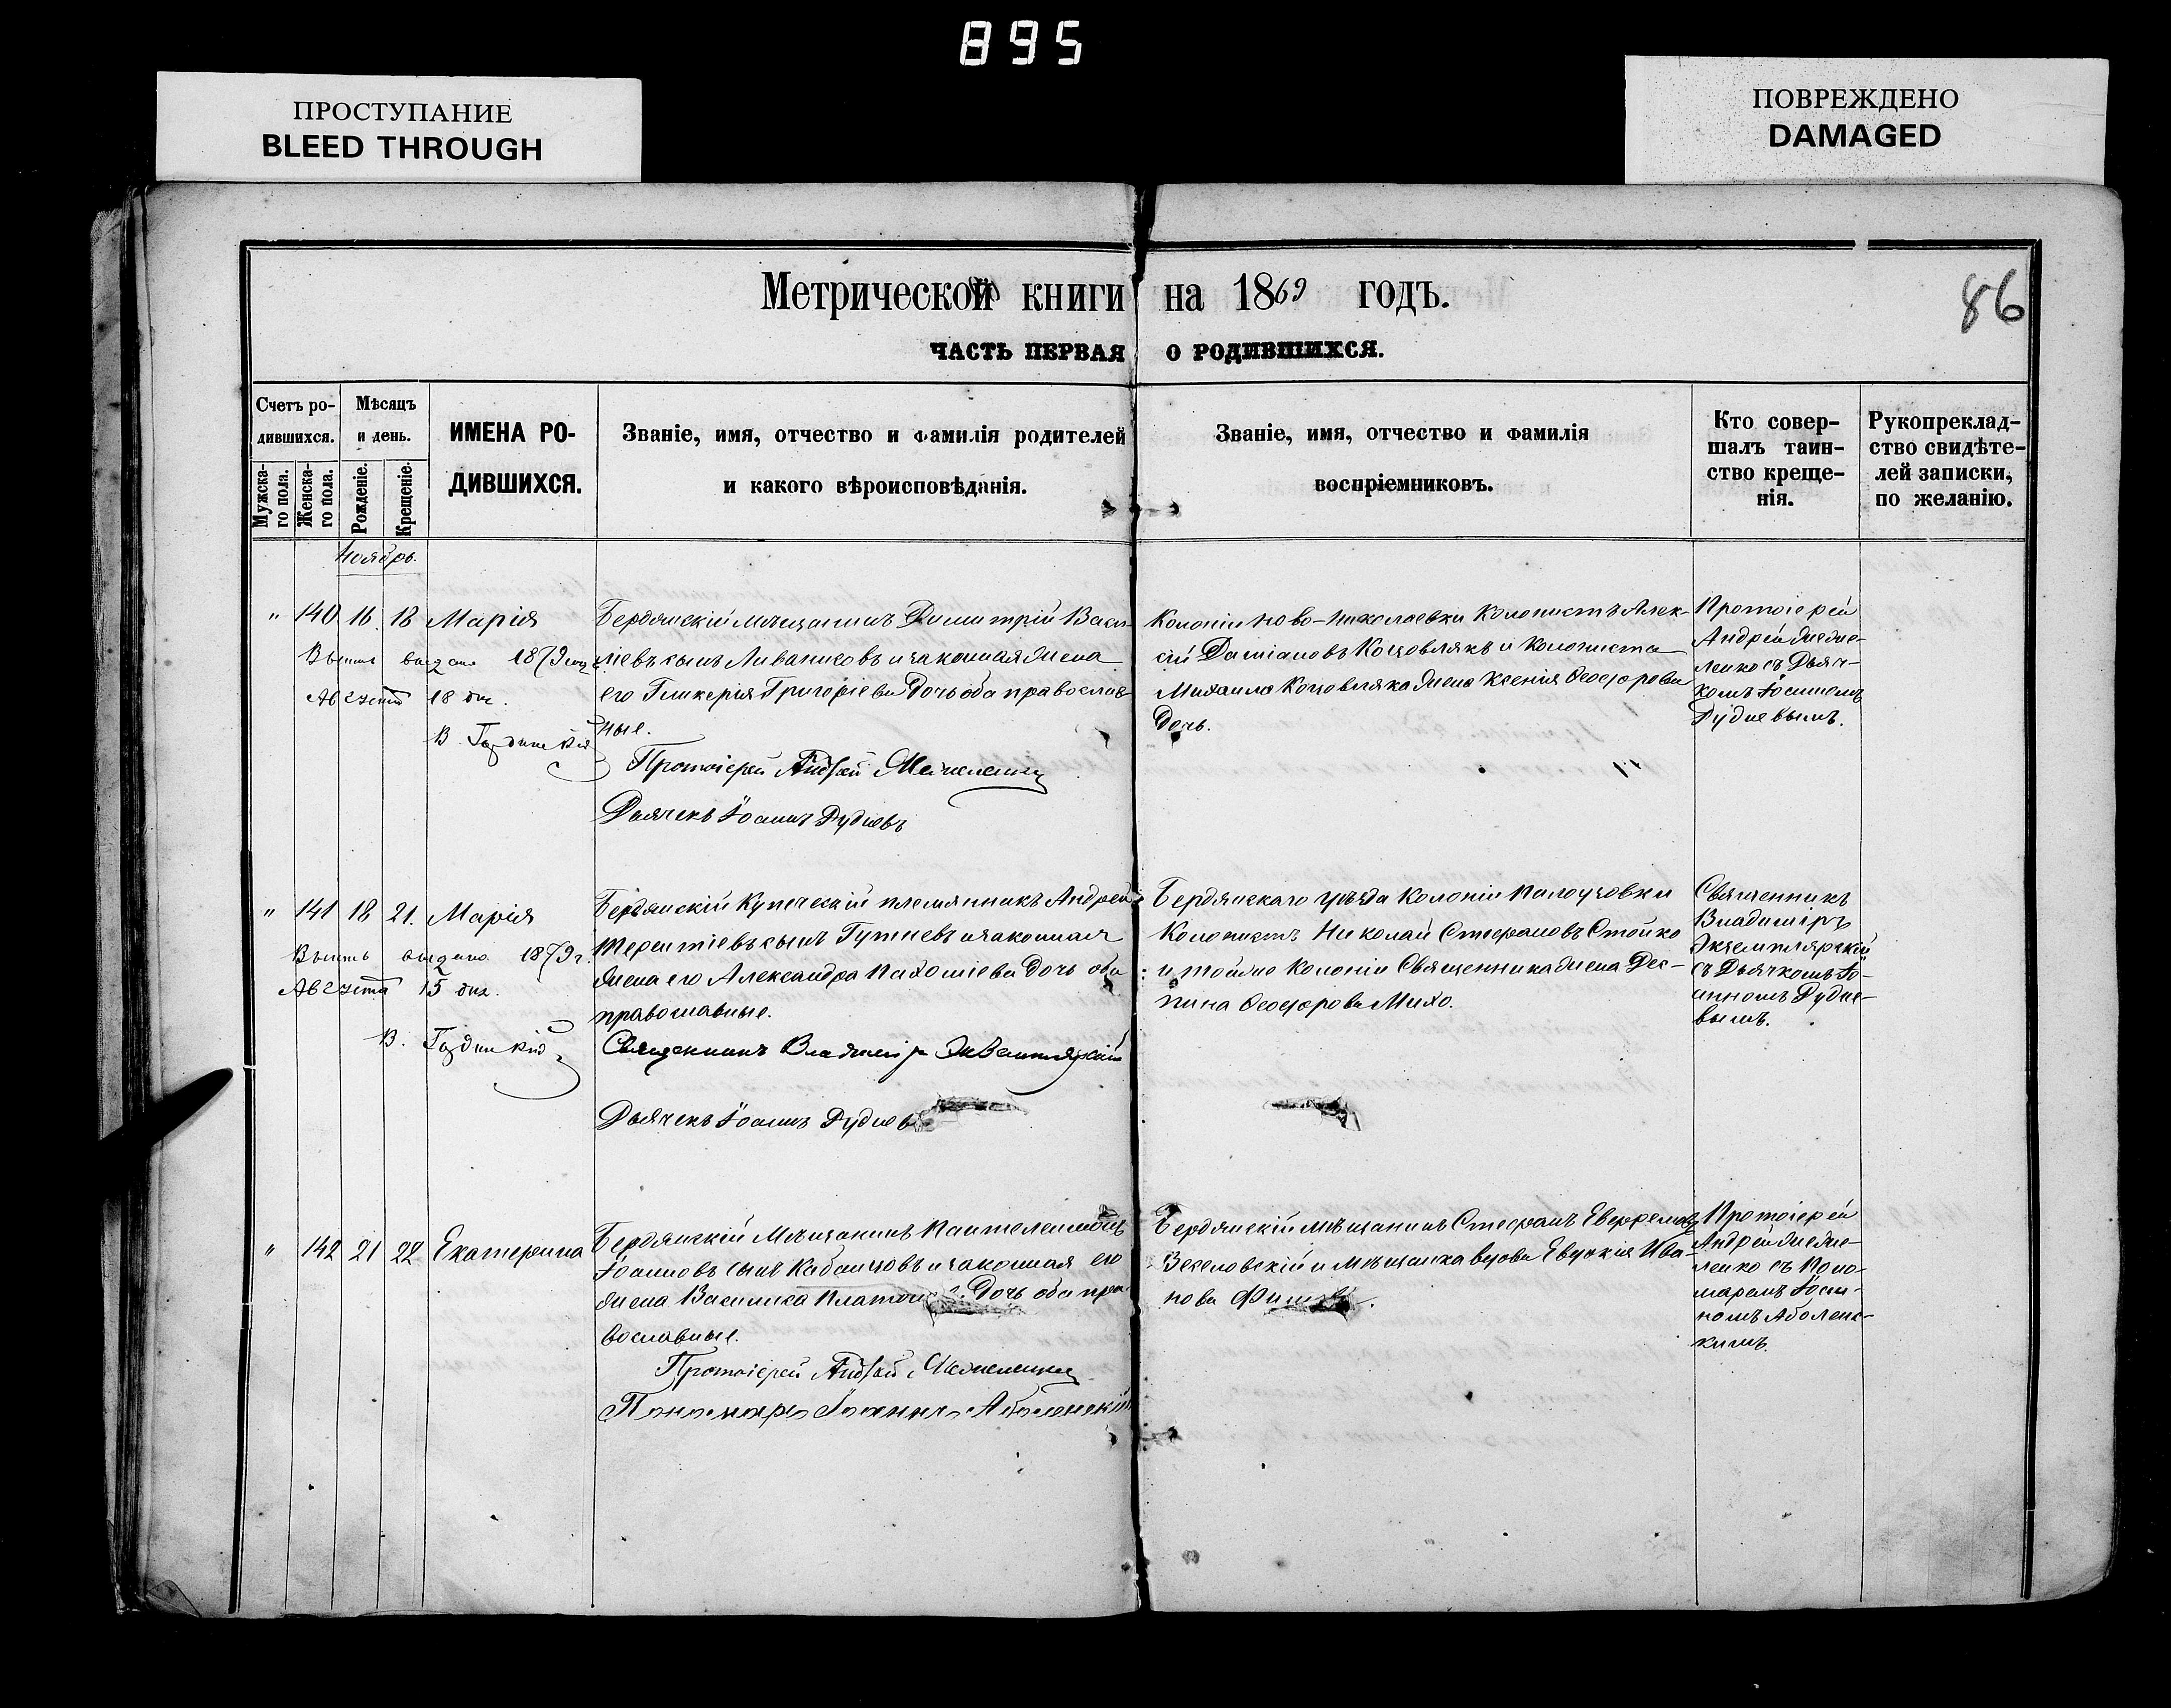 895
ПРОСТУПАНИЕ
BLEED THROUGH
ПОВРЕЖДЕНО
DAMAGED
Метрической книги на 1869 годъ.
86
ЧАСТЬ ПЕРВАЯ О РОДИВШИХСЯ.
Счетъ ро-
дившихся.
Мужска-
го пола.
Женска-
го пола.
Мѣсяцъ
и день.
Рожденіе.
Крещеніе.
ИМЕНА РО-
ДИВШИХСЯ.
Званіе, имя, отчество и фамилія родителей
и какого вѣроисповѣданія.
Званіе, имя, отчество и фамилія
воспріемниковъ.
Кто совер-
шалъ таин-
ство креще-
нія.
Рукоприклад-
ство свидѣте-
лей записки,
по желанію.
Ноябрь.
" 140 16 18 Марія
Выпись выдана 1879 года
Августа 18 дня.
Бердянскій мѣщанинъ Димитрій Васи-
ліевъ сынъ Ливанисовъ и законная жена
его Гликерія Григоріева дочь оба православ-
ные.
Протоіерей Андрей
Дьячекъ Іоаннъ Рудневъ
Колоніи Ново-Николаевки колонистъ Алек-
сій Даміановъ Коцовлякъ и колониста
Михаила Коцовляка жена Ксенія Ѳеодорова
дочь.
Протоіерей
Андрей
съ Дьяч-
комъ Іоанномъ
Рудневымъ.
" 141 18 21. Марія
Выпись выдана 1879 г.
Августа 15 дня.
Бердянскій Купеческій племянникъ Андрей
Терентіевъ сынъ Гутневъ и законная
жена его Александра Пахоміева дочь оба
православные.
Священникъ Владиміръ Экземплярскій
Дьячекъ Іоаннъ Рудневъ
Бердянскаго уѣзда колоніи Палоузовки
колонистъ Николай Стефановъ Стойко
и тойже колоніи Священника жена Дес-
пина Ѳеодорова Михо.
Священникъ
Владиміръ
Экземплярскій
съ Дьячкомъ Іо-
анномъ Рудне-
вымъ.
" 142 21 22 Екатерина
Бердянскій Мѣщанинъ Пантелеимонъ
Іоанновъ сынъ Кабанцовъ и законная его
жена Василиса дочь оба пра-
вославные.
Протоіерей Андрей
Пономарь Іоаннъ Аболенскій
Бердянскій мѣщанинъ Стефанъ
Веселовскій и мѣщанка вдова Евдокія Ива-
нова
Протоіерей
Андрей
съ Поно-
маремъ Іоан-
номъ Аболенс-
кимъ.